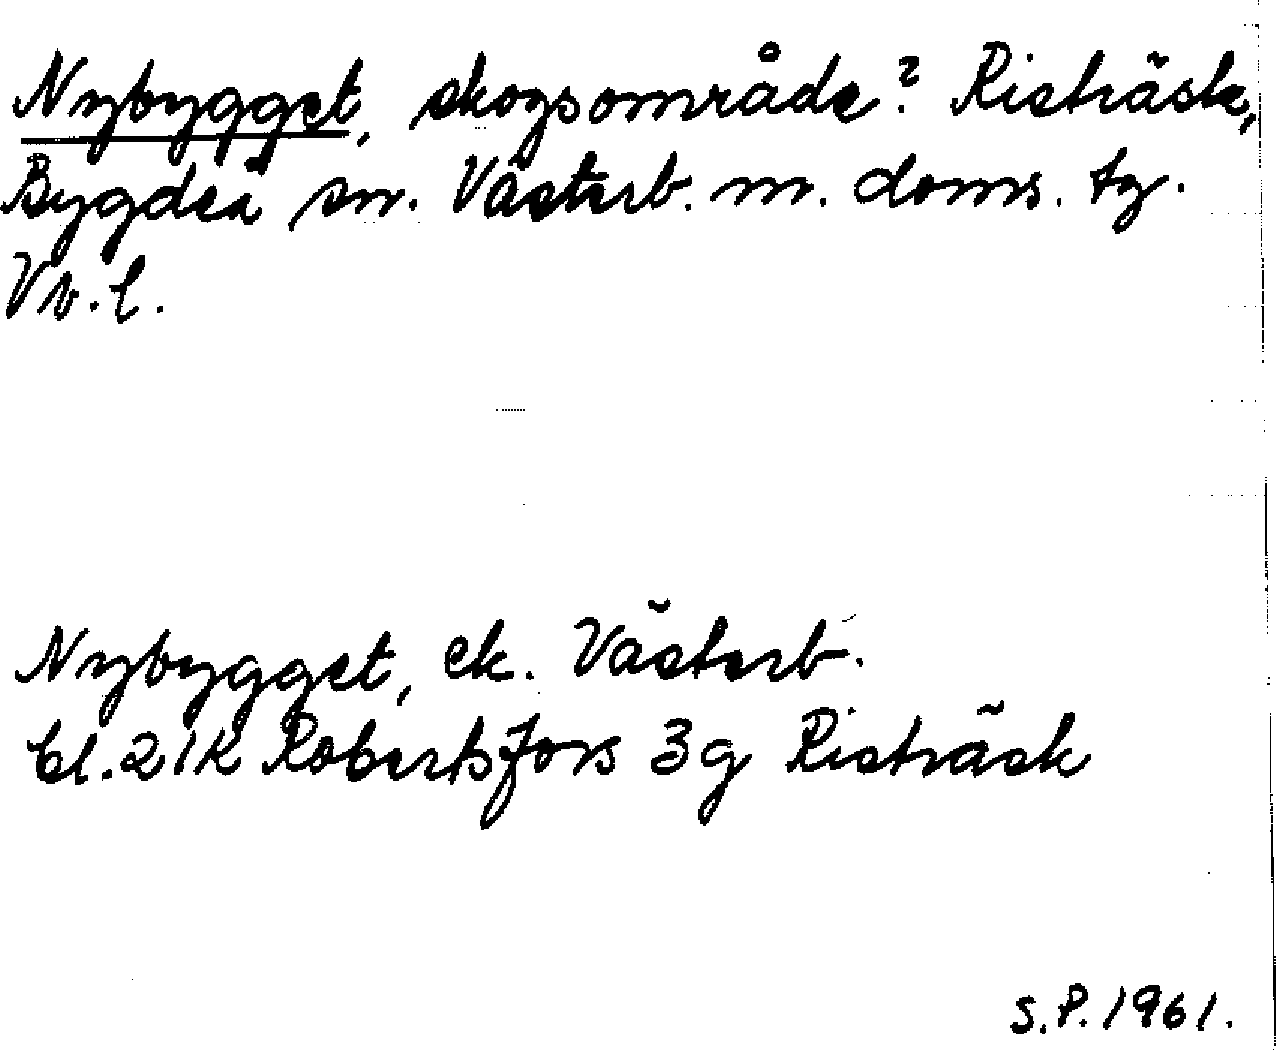 Nybygget, skogsområde? Risträsk,
Bygdeå sn. Västerb. m. doms. tg.
Vb. l.
Nybygget, ek. Västerb.
bl. 21K Robertsfors 3g Risträsk
S.P. 1961.